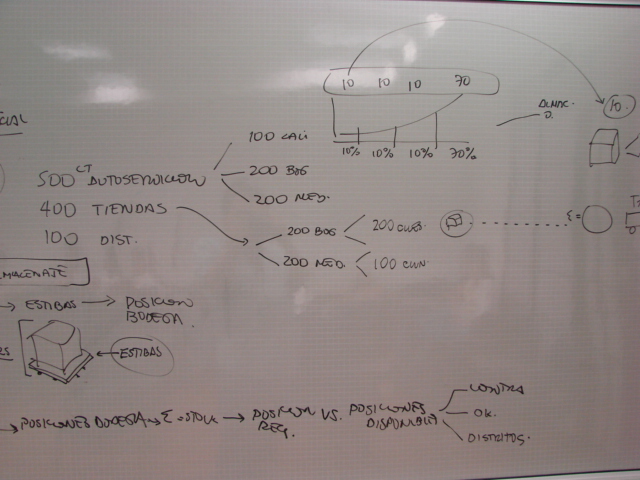 10 10 10 70
10% 10% 10% 70%
ALMAC
10.
CIAL
100 CALI
500 CT AUTOSERVICIOS
200 BOG
200 MED.
400 TIENDAS
100 DIST.
200 BOG
200 MED.
100
ALMACENATE
ESTIBAS
POSICION
BODEGA.
ESTIBAS
POSICIONES BODEGA
Σ STOCK
POSICION VS. POSICIONES
REQ. DISPONIBLES
CONTRA
OK.
DISTINTOS.